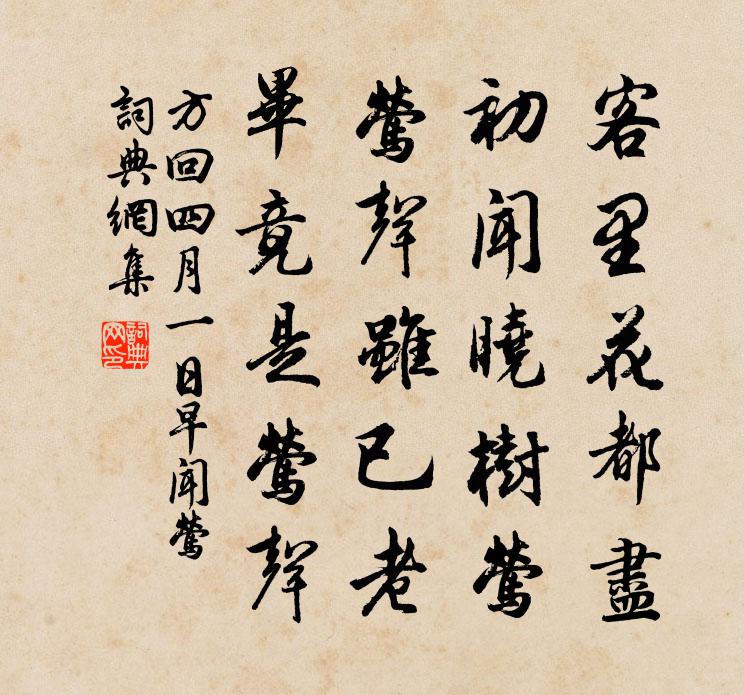 客里花都盡
初聞曉樹鶯
鶯聲雖已老
畢竟是鶯聲
方回四月一日早聞鶯
詞典網集
詞典網印